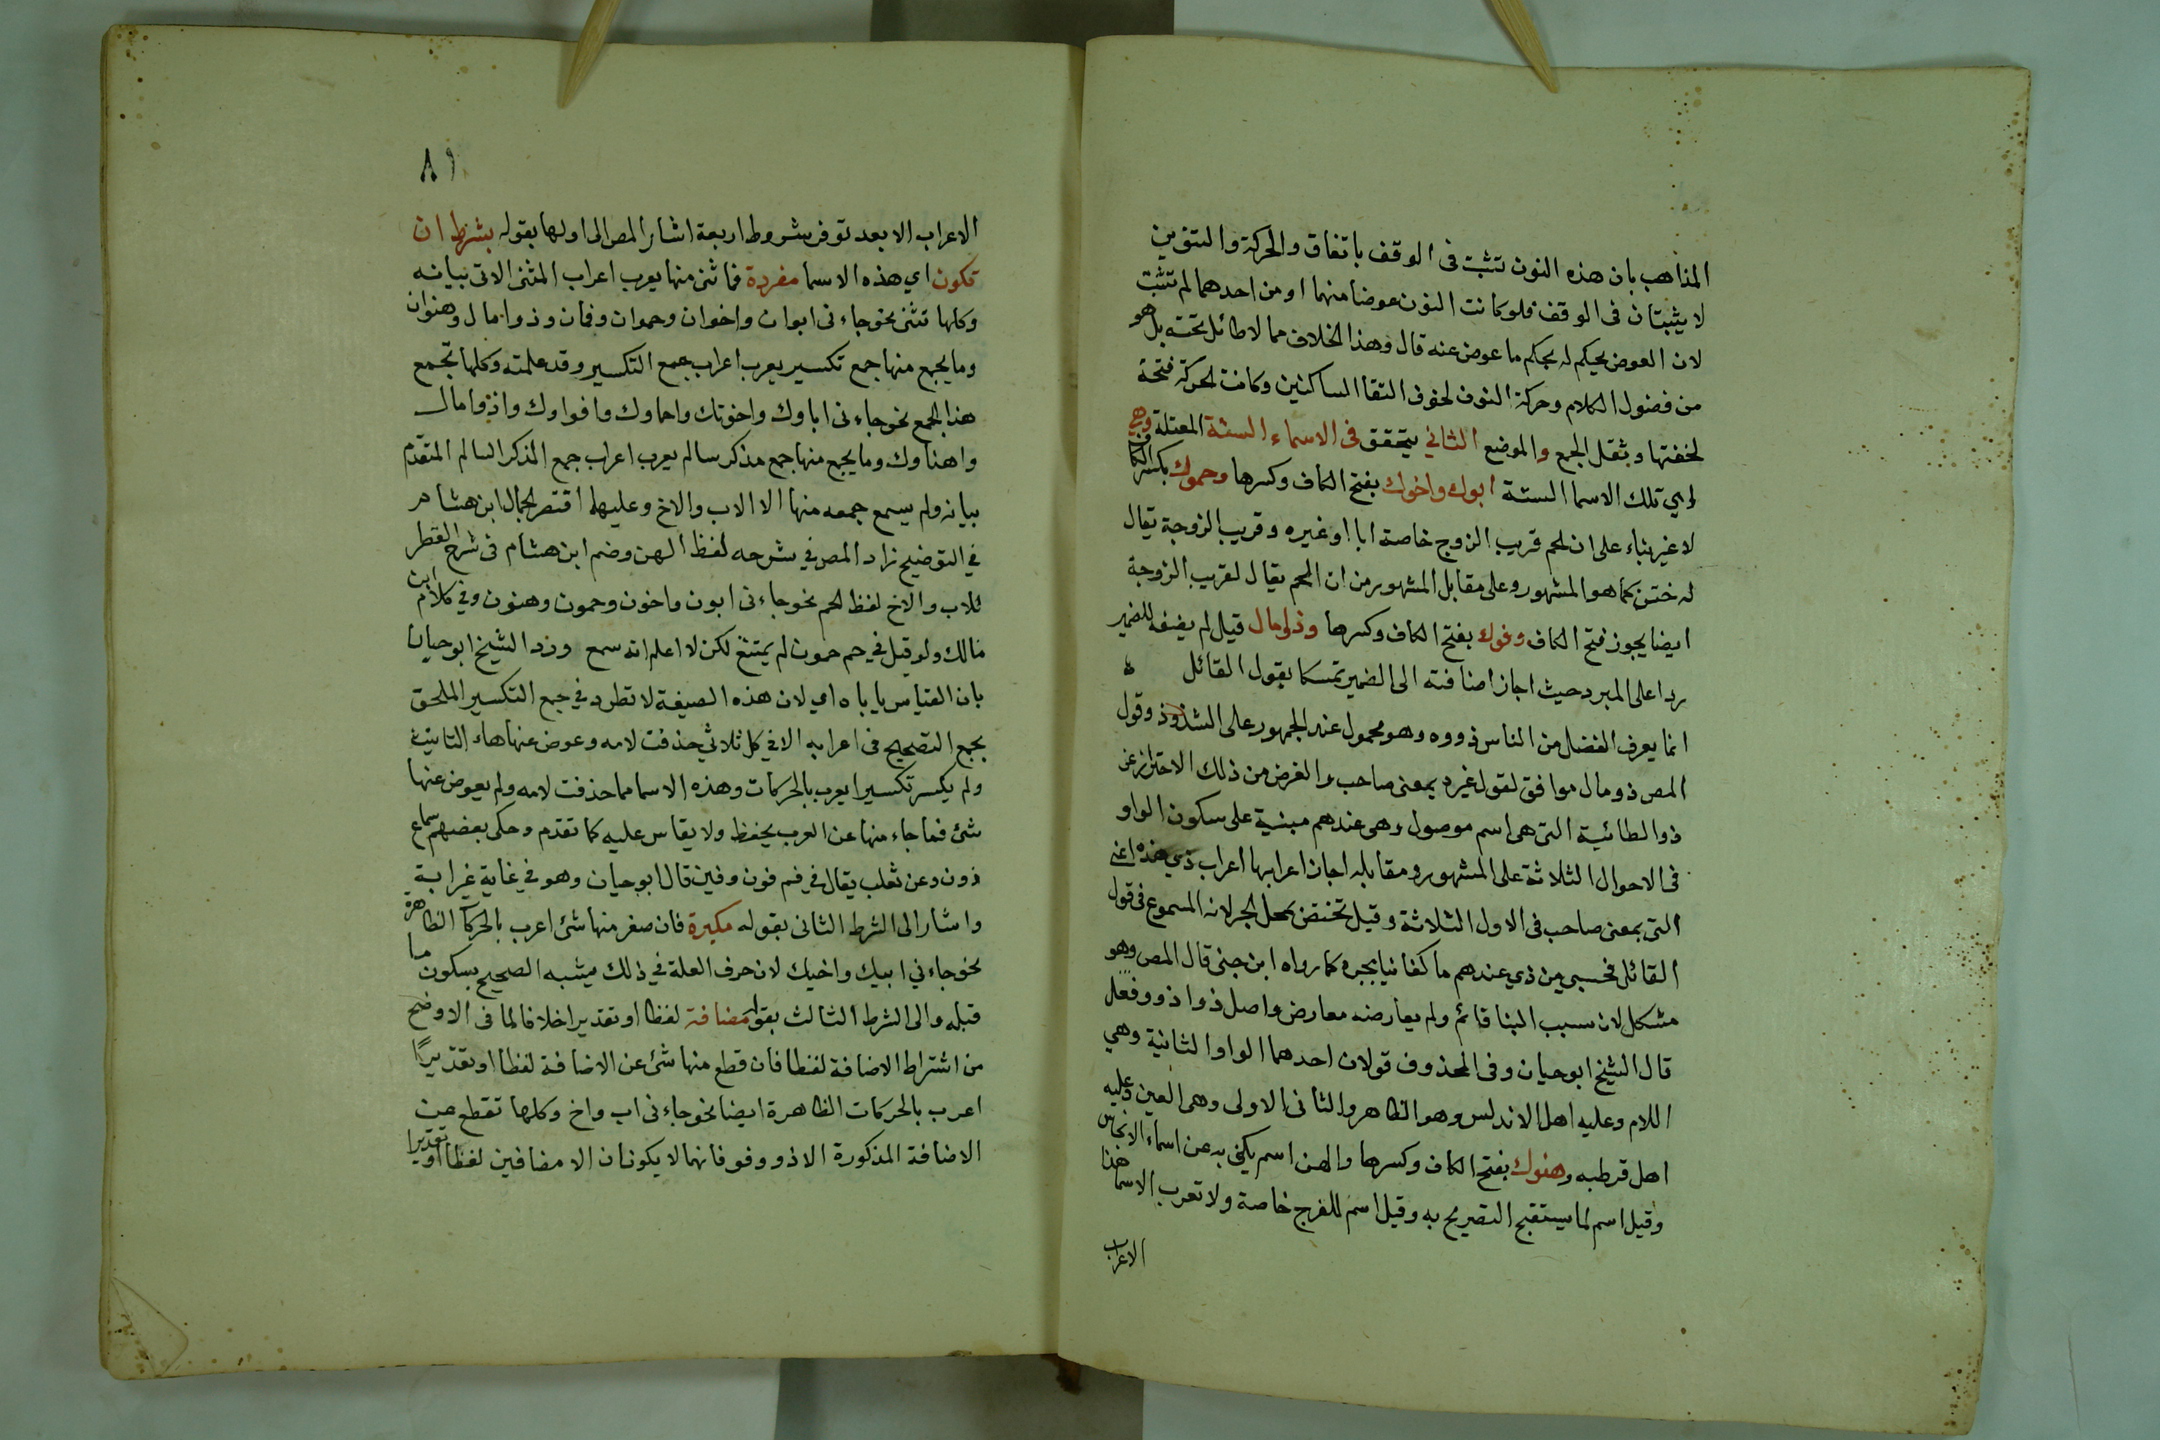 المذاهب بان هذه النون تثبت فى الوقف باتفاق والحركة والتنوين
لا يثبتان فى الوقف فلو كانت النون عوضا منهما او من احدهما لم تثبت
لان العوض يحكم له بحكم ما عوض عنه قال وهذا الخلاف مما لا طائل تحته بل هو
من فضول الكلام وحركة النون لخوف التقا الساكنين وكانت الحركة فتحة
لخفتها وبثقل الجمع والموضع الثاني يتحقق فى الاسماء الستة المعتلة وهي
اي تلك الاسما الستة ابوك واخوك بفتح الكاف وكسرها وحموك بكسر الكاف
لا غير بناء على ان الحم قريب الزوج خاصة ابا او غيره وقريب الزوجة يقال
له ختن كما هو المشهور وعلى مقابل المشهور من ان الحم يقال لقريب الزوجة
ايضا يجوز فتح الكاف وفوك بفتح الكاف وكسرها وذو مال قيل لم يضفه للضمير
ردا على المبرد حيث اجاز اضافته الى الضمير تمسكا بقول القائل
انما يعرف الفضل من الناس ذووه وهو محمول عند الجمهور على الشذوذ وقول
المص ذو مال موافق لقول غيره بمعنى صاحب والغرض من ذلك الاحتراز عن
ذو الطائية التى هى اسم موصول وهى عندهم مبنية على سكون الواو
فى الاحوال الثلاثة على المشهور ومقابله اجاز اعرابها اعراب ذي هذه اعني
التى بمعنى صاحب فى الاول الثلاثة وقيل تختص بحال الجر لانه المسموع فى قول
القائل فحسبي من ذي عندهم ما كفانيا بجره كما رواه ابن جنى قال المص وهو
مشكل لان سبب البنا قائم ولم يعارضه معارض واصل ذو اذوو فعل
قال الشيخ ابو حيان وفى المحذوف قولان احدهما الواو الثانية وهي
اللام وعليه اهل الاندلس وهو الظاهر والثانى الاولى وهى العين وعليه
اهل قرطبه وهنوك بفتح الكاف وكسرها والهن اسم يكنى به عن اسماء الاجناس
وقيل اسم لما يستقبح التصريح به وقيل اسم للفرج خاصة ولا تعرب الاسما هذا
الاعراب
٨٩
الاعراب الا بعد توفر شروط اربعة اشار المص الى اولها بقوله بشرط ان
تكون اي هذه الاسما مفردة فما ثنى منها يعرب اعراب المثنى الاتى بيانه
وكلها تثنى نحو جاءنى ابوان واخوان وحموان وفمان وذوا مال وهنوان
وما يجمع منها جمع تكسير يعرب اعراب جمع التكسير وقد علمته وكلها تجمع
هذا الجمع نحو جاءنى اباوك واخوتك واحماوك وافواوك واذوا مال
واهناوك وما يجمع منها جمع مذكر سالم يعرب اعراب جمع المذكر السالم المتقدم
بيانه ولم يسمع جمعه منها الا الاب والاخ وعليهما اقتصر الجمال ابن هشام
في التوضيح زاد المص في شرحه لفظ الهن وضم ابن هشام فى شرح القطر
للاب والاخ لفظ الحم نحو جاءنى ابون واخون وحمون وهنون وفي كلام ابن
مالك ولو قيل في حم حمون لم يمتنع لكن لا اعلم انه سمع ورد الشيخ ابو حيان
بان القياس ياباه اي لان هذه الصيغة لا تطرد في جمع التكسير الملحق
بجمع التصحيح فى اعرابه الا في كل ثلاثي حذفت لامه وعوض عنها هاء التانيث
ولم يكسر تكسيرا يعرب بالحركات وهذه الاسما مما حذفت لامه ولم يعوض عنها
شئ فما جاء منها عن العرب يحفظ ولا يقاس عليه كما تقدم وحكى بعضهم سماع
ذون وعن ثعلب يقال في فم فون وفين قال ابو حيان وهو في غاية غرابة
واشار الى الشرط الثانى بقوله مكبرة فان صغر منها شئ اعرب بالحركا الظاهرة
نحو جاءني ابيك واخيك لان حرف العلة في ذلك يشبه الصحيح بسكون ما
قبله والى الشرط الثالث بقوله مضافة لفظا او تقديرا خلافا لما فى الاوضح
من اشتراط الاضافة لفظا فان قطع منها شئ عن الاضافة لفظا او تقديرًا
اعرب بالحركات الظاهرة ايضا نحو جاءنى اب واخ وكلها تقطع عن
الاضافة المذكورة الا ذو وفو فانهما لا يكونان الا مضافين لفظا او تقديرا